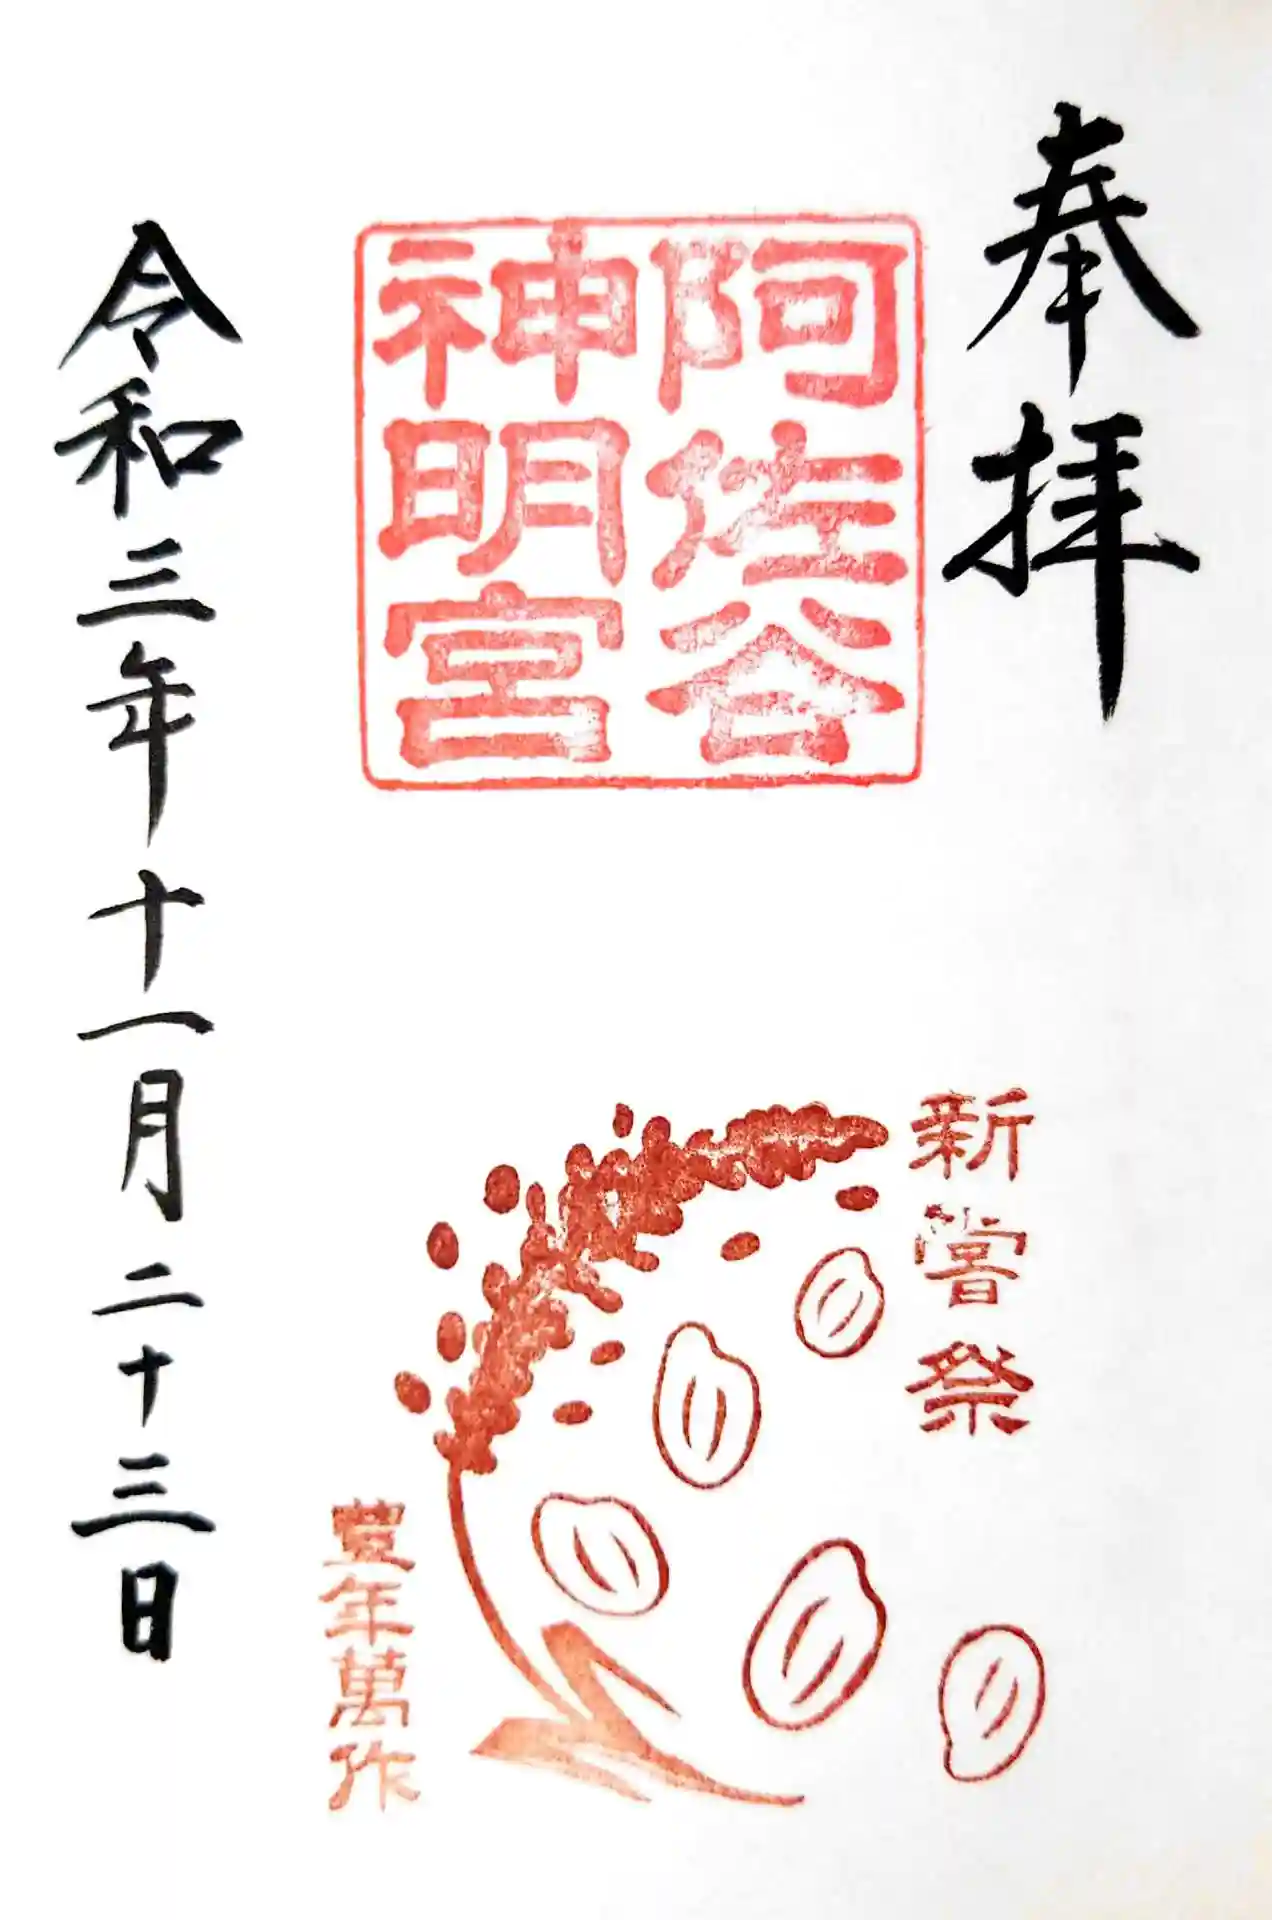 奉拝
阿佐谷
神明宮
新嘗祭
豊年萬作
令和三年十一月二十三日